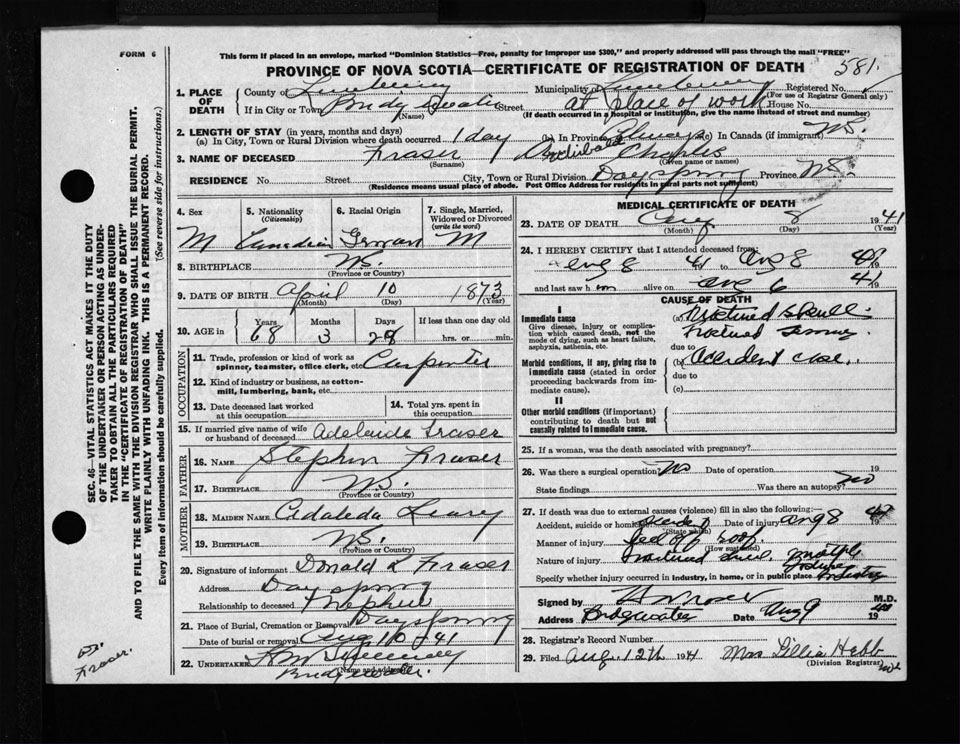 FORM 6
This form if placed in an envelope, marked "Dominion Statistics—Free, penalty for improper use $300," and properly addressed will pass through the mail "FREE"
PROVINCE OF NOVA SCOTIA—CERTIFICATE OF REGISTRATION OF DEATH 581
SEC. 46—VITAL STATISTICS ACT MAKES IT THE DUTY
OF THE UNDERTAKER OR PERSON ACTING AS UNDER-
TAKER TO OBTAIN ALL THE PARTICULARS REQUIRED
IN THE "CERTIFICATE OF REGISTRATION OF DEATH"
AND TO FILE THE SAME WITH THE DIVISION REGISTRAR WHO SHALL ISSUE THE BURIAL PERMIT.
WRITE PLAINLY WITH UNFADING INK. THIS IS A PERMANENT RECORD.
Every item of information should be carefully supplied. (See reverse side for instructions.)
1. PLACE OF DEATH
County of Lunenburg Municipality of Lunenburg Registered No.
(For use of Registrar General only)
If in City or Town Street at place of work House No.
(Name) (If death occurred in a hospital or institution, give the name instead of street and number)
2. LENGTH OF STAY (in years, months and days)
(a) In City, Town or Rural Division where death occurred 1 day (b) In Province Always (c) In Canada (if immigrant)
3. NAME OF DECEASED Fraser Archibald Charles
(Surname) (Given name or names)
RESIDENCE No. Street City, Town or Rural Division Dayspring Province N.S.
(Residence means usual place of abode. Post Office Address for residents in rural parts not sufficient)
4. Sex M
5. Nationality (Citizenship) Canadian
6. Racial Origin German
7. Single, Married, Widowed or Divorced (write the word) M
8. BIRTHPLACE N.S.
(Province or Country)
9. DATE OF BIRTH April 10 1873
(Month) (Day) (Year)
10. AGE in Years Months Days If less than one day
68 3 28 hrs. or min.
OCCUPATION
11. Trade, profession or kind of work as spinner, teamster, office clerk, etc. Carpenter
12. Kind of industry or business, as cotton-mill, lumbering, bank, etc.
13. Date deceased last worked at this occupation
14. Total yrs. spent in this occupation
15. If married give name of wife or husband of deceased Adelaide Fraser
FATHER
16. NAME Stephen Fraser
17. BIRTHPLACE N.S.
(Province or Country)
MOTHER
18. MAIDEN NAME
19. BIRTHPLACE N.S.
(Province or Country)
20. Signature of informant Donald L Fraser
Address Dayspring
Relationship to deceased Nephew
21. Place of Burial, Cremation or Removal Dayspring
Date of burial or removal Aug 10 - 41
22. UNDERTAKER
(Name and address)
Bridgewater
MEDICAL CERTIFICATE OF DEATH
23. DATE OF DEATH Aug 8 1941
(Month) (Day) (Year)
24. I HEREBY CERTIFY that I attended deceased from:
Aug 8 41 to Aug 8 19 41
and last saw h im alive on Aug 19 41
CAUSE OF DEATH
I
Immediate cause
Give disease, injury or complication which caused death, not the mode of dying, such as heart failure, asphyxia, asthenia, etc.
(a) Fractured Skull
Fractured
due to
Morbid conditions, if any, giving rise to immediate cause (stated in order proceeding backwards from immediate cause).
(b) Accident
due to
(c)
II
Other morbid conditions (if important) contributing to death but not causally related to immediate cause.
25. If a woman, was the death associated with pregnancy?
26. Was there a surgical operation? No Date of operation 19
State findings Was there an autopsy? no
27. If death was due to external causes (violence) fill in also the following:
Accident, suicide or homicide Accident Date of injury Aug 8 19
(State which)
Manner of injury roof
(How sustained)
Nature of injury Fractured
Specify whether injury occurred in industry, in home, or in public place Industry
Signed by M.D.
Address Bridgewater Date Aug 9 19
28. Registrar's Record Number
29. Filed Aug 12th 1941 Mrs Lillia Hebb
(Division Registrar)
Fraser.